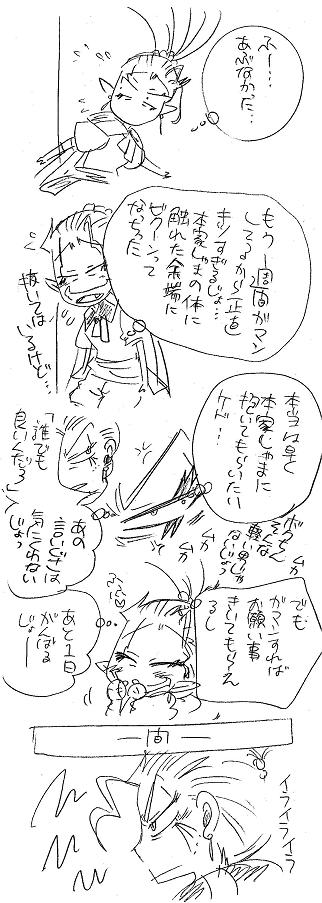 ふー…
あぶなかった…
もう一週間ガマン
してるから正直
キツすぎるじょ…
本家じゃまの体に
触れた途端に
ビクーンって
なっちった
抜いては
いるけど…
本当は早く
本家じゃまに
抱いてもらいたい
ケド…
「誰でも
良いんだろ」
あの
言いぐさは
気にくわない
じょっ
ボクちん
そんな
軽い男じゃ
ないじょっ
ムカ
ムカ
でも
ガマンすれば
お願い事
きいてもらえ
るし
あと1日
がんばる
じょー
一方
イライライラ